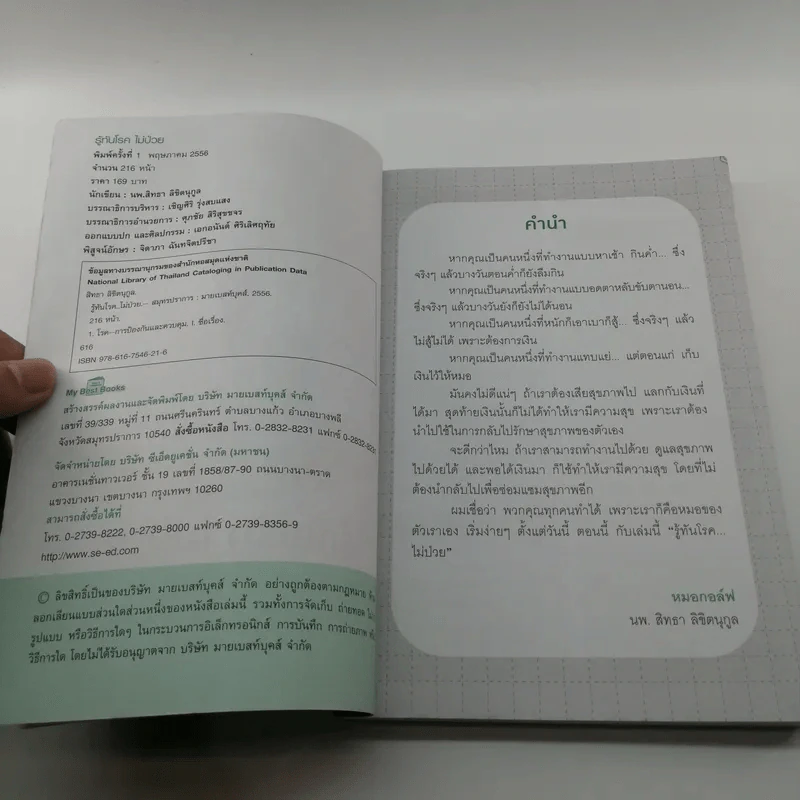 รู้ทันโรค ไม่ป่วย
พิมพ์ครั้งที่ 1 พฤษภาคม 2556
จำนวน 216 หน้า
ราคา 169 บาท
นักเขียน : นพ.สิทธา ลิขิตนุกูล
บรรณาธิการบริหาร : เชิญศิริ รุ่งสบแสง
บรรณาธิการอำนวยการ : ศุภชัย สิริสุขชจร
ออกแบบปก และศิลปกรรม : เอกอนันต์ ศิริเลิศฤทัย
พิสูจน์อักษร : จิดาภา ฉันทจิตปรีชา
ข้อมูลทางบรรณานุกรมของสำนักหอสมุดแห่งชาติ
National Library of Thailand Cataloging in Publication Data
สิทธา ลิขิตนุกูล.
รู้ทันโรค...ไม่ป่วย... สมุทรปราการ : มายเบสท์บุคส์, 2556.
216 หน้า.
1. โรค--การป้องกันและควบคุม. I. ชื่อเรื่อง.
616
ISBN 978-616-7546-21-6
My Best Books
สร้างสรรค์ผลงานและจัดพิมพ์โดย บริษัท มายเบสท์บุคส์ จำกัด
เลขที่ 39/339 หมู่ที่ 11 ถนนศรีนครินทร์ ตำบลบางแก้ว อำเภอบางพลี
จังหวัดสมุทรปราการ 10540 สั่งซื้อหนังสือ โทร. 0-2832-8231 แฟกซ์ 0-2832-8231
จัดจำหน่ายโดย บริษัท ซีเอ็ดยูเคชั่น จำกัด (มหาชน)
อาคารเนชั่นทาวเวอร์ ชั้น 19 เลขที่ 1858/87-90 ถนนบางนา-ตราด
แขวงบางนา เขตบางนา กรุงเทพฯ 10260
สามารถสั่งซื้อได้ที่
โทร. 0-2739-8222, 0-2739-8000 แฟกซ์ 0-2739-8356-9
http://www.se-ed.com
© ลิขสิทธิ์เป็นของบริษัท มายเบสท์บุคส์ จำกัด อย่างถูกต้องตามกฎหมาย
ลอกเลียนแบบส่วนใดส่วนหนึ่งของหนังสือเล่มนี้ รวมทั้งการจัดเก็บ ถ่ายทอด
รูปแบบ หรือวิธีการใดๆ ในกระบวนการอิเล็กทรอนิกส์ การบันทึก การถ่ายภาพ
วิธีการใด โดยไม่ได้รับอนุญาตจาก บริษัท มายเบสท์บุคส์ จำกัด
คำนำ
หากคุณเป็นคนหนึ่งที่ทำงานแบบหาเช้า กินค่ำ... ซึ่ง
จริงๆ แล้วบางวันตอนค่ำก็ยังลืมกิน
หากคุณเป็นคนหนึ่งที่ทำงานแบบอดตาหลับขับตานอน...
ซึ่งจริงๆ แล้วบางวันยังก็ยังไม่ได้นอน
หากคุณเป็นคนหนึ่งที่หนักก็เอาเบาก็สู้... ซึ่งจริงๆ แล้ว
ไม่สู้ไม่ได้ เพราะต้องการเงิน
หากคุณเป็นคนหนึ่งที่ทำงานแทบแย่... แต่ตอนแก่ เก็บ
เงินไว้ให้หมอ
มันคงไม่ดีแน่ๆ ถ้าเราต้องเสียสุขภาพไป แลกกับเงินที่
ได้มา สุดท้ายเงินนั้นก็ไม่ได้ทำให้เรามีความสุข เพราะเราต้อง
นำไปใช้ในการกลับไปรักษาสุขภาพของตัวเอง
จะดีกว่าไหม ถ้าเราสามารถทำงานไปด้วย ดูแลสุขภาพ
ไปด้วยได้ และพอได้เงินมา ก็ใช้ทำให้เรามีความสุข โดยที่ไม่
ต้องนำกลับไปเพื่อซ่อมแซมสุขภาพอีก
ผมเชื่อว่า พวกคุณทุกคนทำได้ เพราะเราก็คือหมอของ
ตัวเราเอง เริ่มง่ายๆ ตั้งแต่วันนี้ ตอนนี้ กับเล่มนี้ “รู้ทันโรค...
ไม่ป่วย”
หมอกอล์ฟ
นพ. สิทธา ลิขิตนุกูล